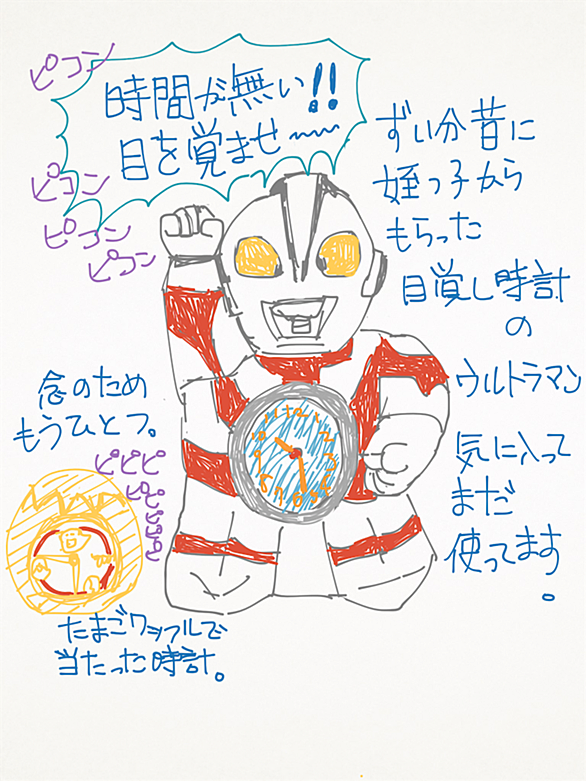 ピコン
時間が無い!!
目を覚ませ〜
ピコン
ピコン
ピコン
ずい分昔に
姪っ子から
もらった
目覚し時計
の
ウルトラマン
気に入って
まだ
使ってます
。
念のため
もうひとつ。
ピピピ
ピピピピピピ
たまごワッフルで
当たった時計。